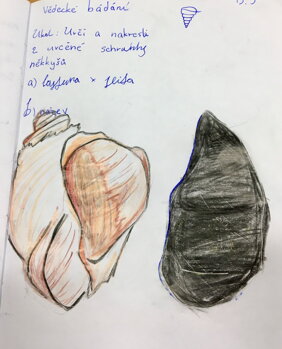 Vědecké bádání
Úkol: Urči a nakresli
2 určené schránky
měkkýšů
a) lastura ×
b) název